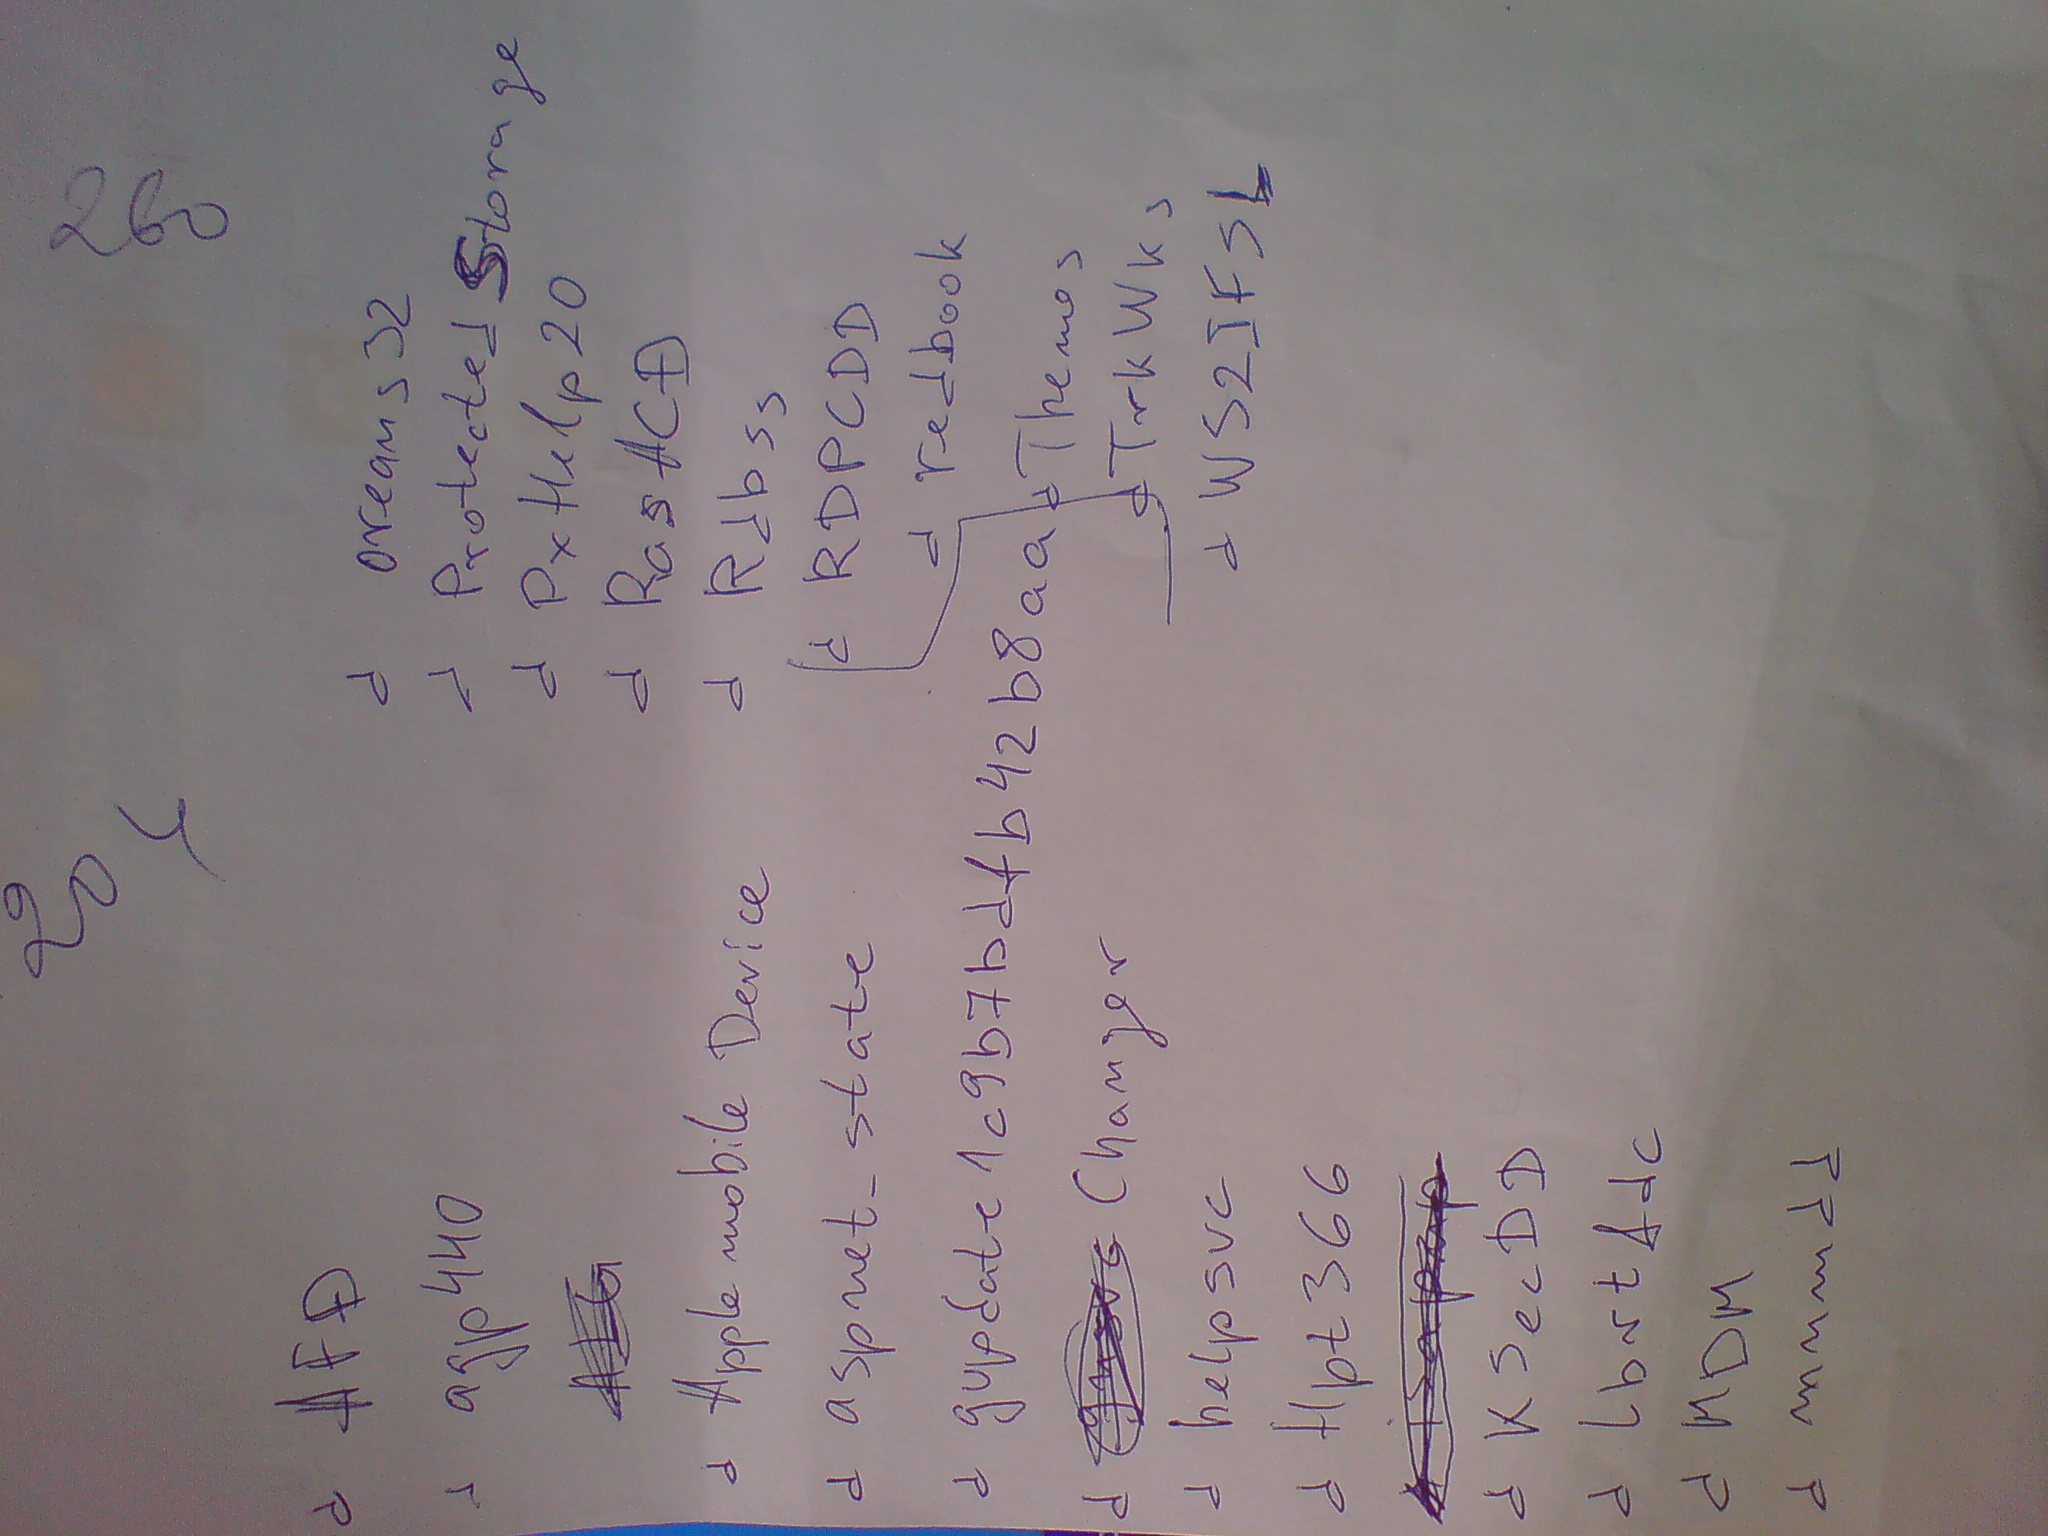 204
260
d AFD
d agp440
d Apple mobile Device
d aspnet_state
d gupdate1c9b7bdfb42b8aa
d Changer
d helpsvc
d Hpt366
d KSecDD
d LbrtFdc
d MDM
d mnmdd
d oreans32
d Protected Storage
d PxHelp20
d RasACD
d Rdbss
d RDPCDD
d redbook
d Themes
d TrkWks
d WS2IFSL